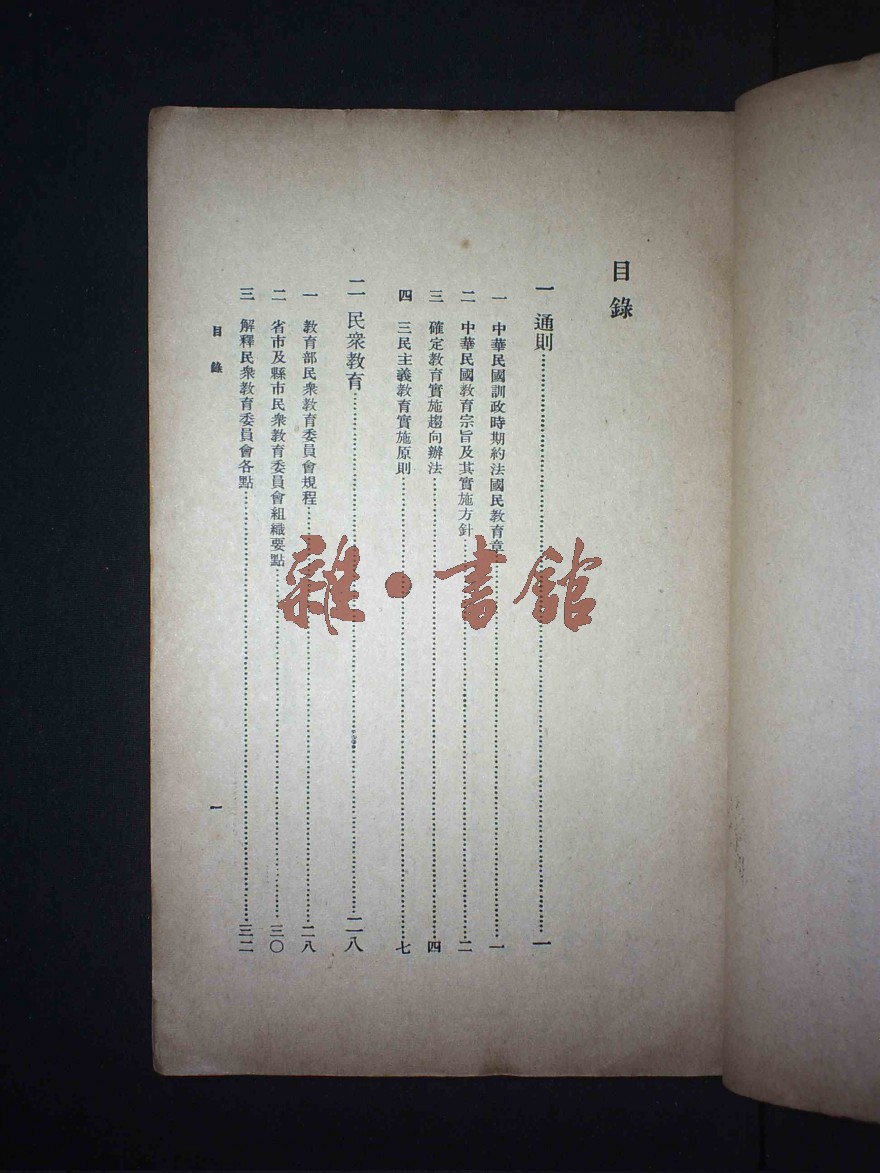 目錄
一 通則……一
一 中華民國訓政時期約法國民教育章……一
二 中華民國教育宗旨及其實施方針……二
三 確定教育實施趨向辦法……四
四 三民主義教育實施原則……七
二 民衆教育……二八
一 教育部民衆教育委員會規程……二八
二 省市及縣市民衆教育委員會組織要點……三〇
三 解釋民衆教育委員會各點……三二
目錄
一
雜·書館